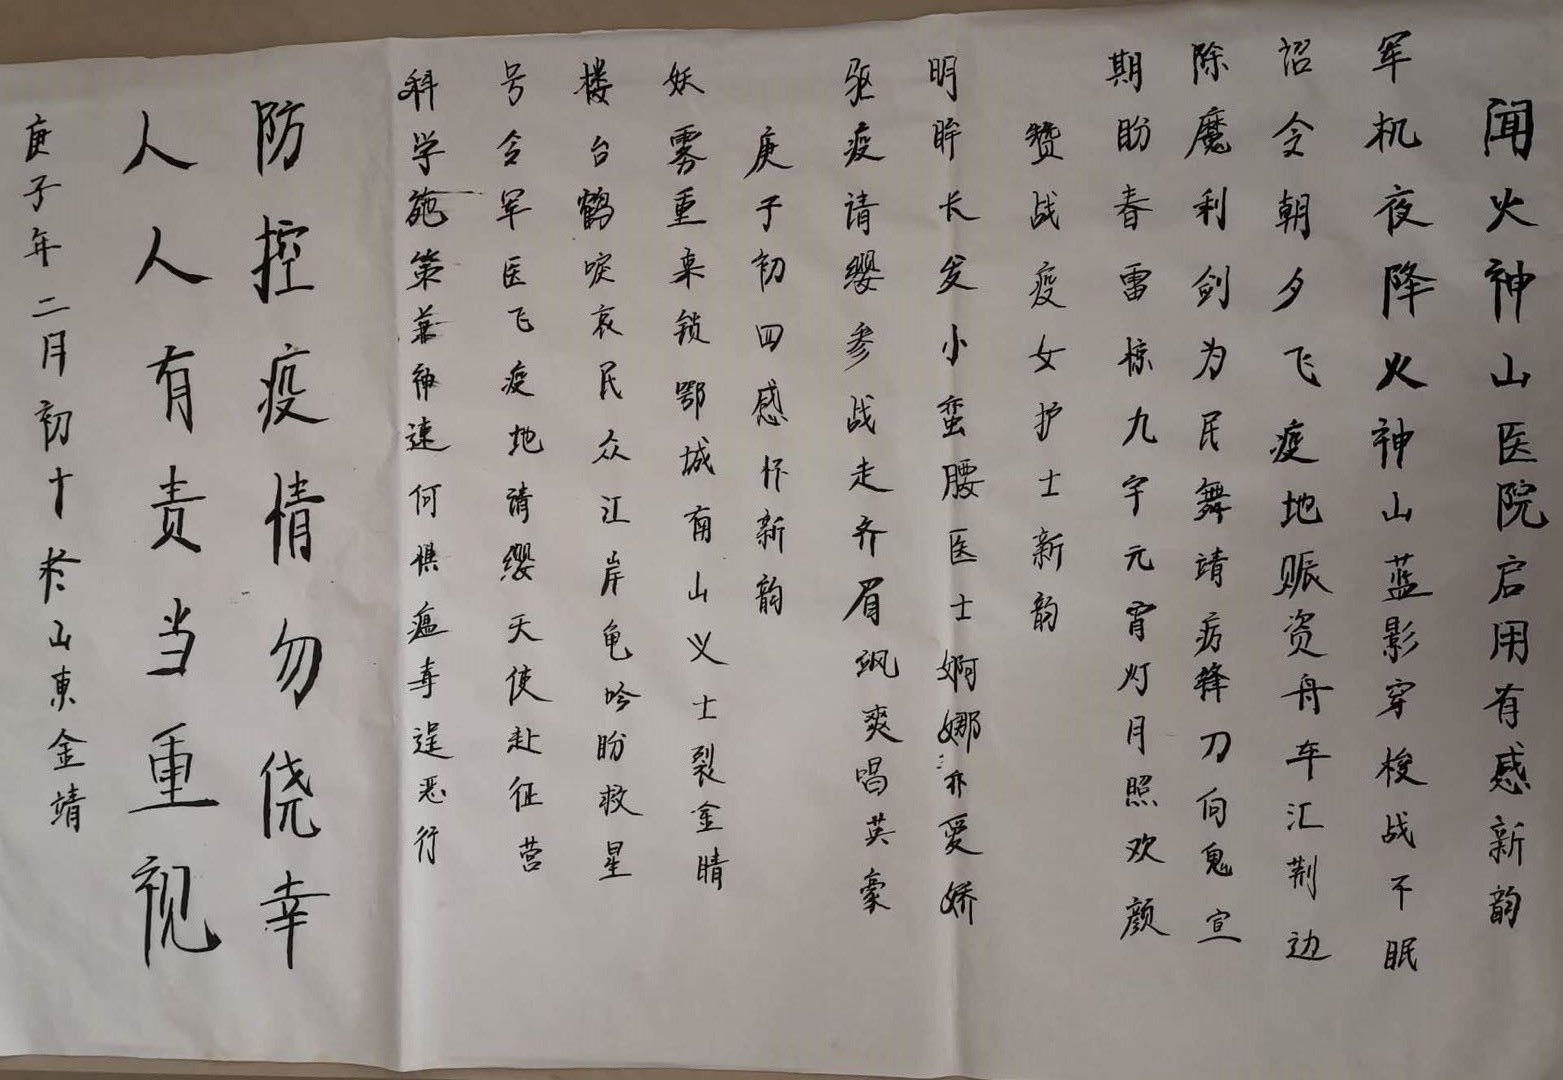 闻火神山医院启用有感新韵
军机夜降火神山蓝影穿梭战不眠
诏令朝夕飞疫地赈资舟车汇荆边
除魔利剑为民舞靖疠锋刀向鬼宣
期盼春雷惊九宇元宵灯月照欢颜
赞战疫女护士新韵
明眸长发小蛮腰医士婀娜亦爱娇
驱疫请缨参战走齐眉飒爽唱英豪
庚子初四感怀新韵
妖雾重来锁鄂城南山义士裂金睛
楼台鹤唳哀民众江岸龟吟盼救星
号令军医飞疫地请缨天使赴征营
科学施策兼神速何惧瘟毒逞恶行
防控疫情勿侥幸
人人有责当重视
庚子年二月初十於山東金靖